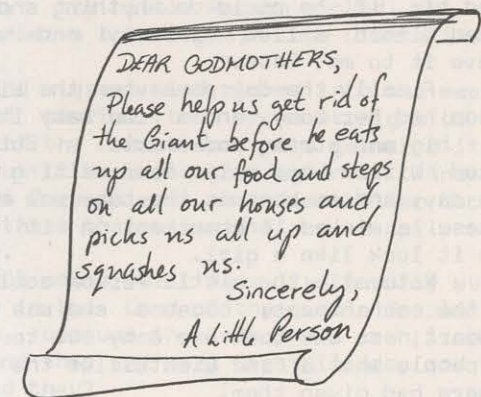 DEAR GODMOTHERS,
Please help us get rid of
the Giant before he eats
up all our food and steps
on all our houses and
picks us all up and
squashes us.
Sincerely,
A Little Person